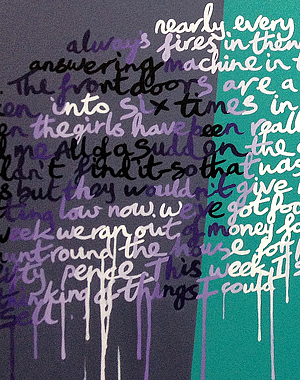 nearly every
always fires in them
answering machine in t
. The front doors are a
en into six times in
en the girls have been reall
d me All of a sudden the
dn't find it so that was
s but they wouldn't give
ting low now. we've got foo
week we ran out of money fo
unt round the house for
ifty pence. This week I s
thinking of things I could
sell